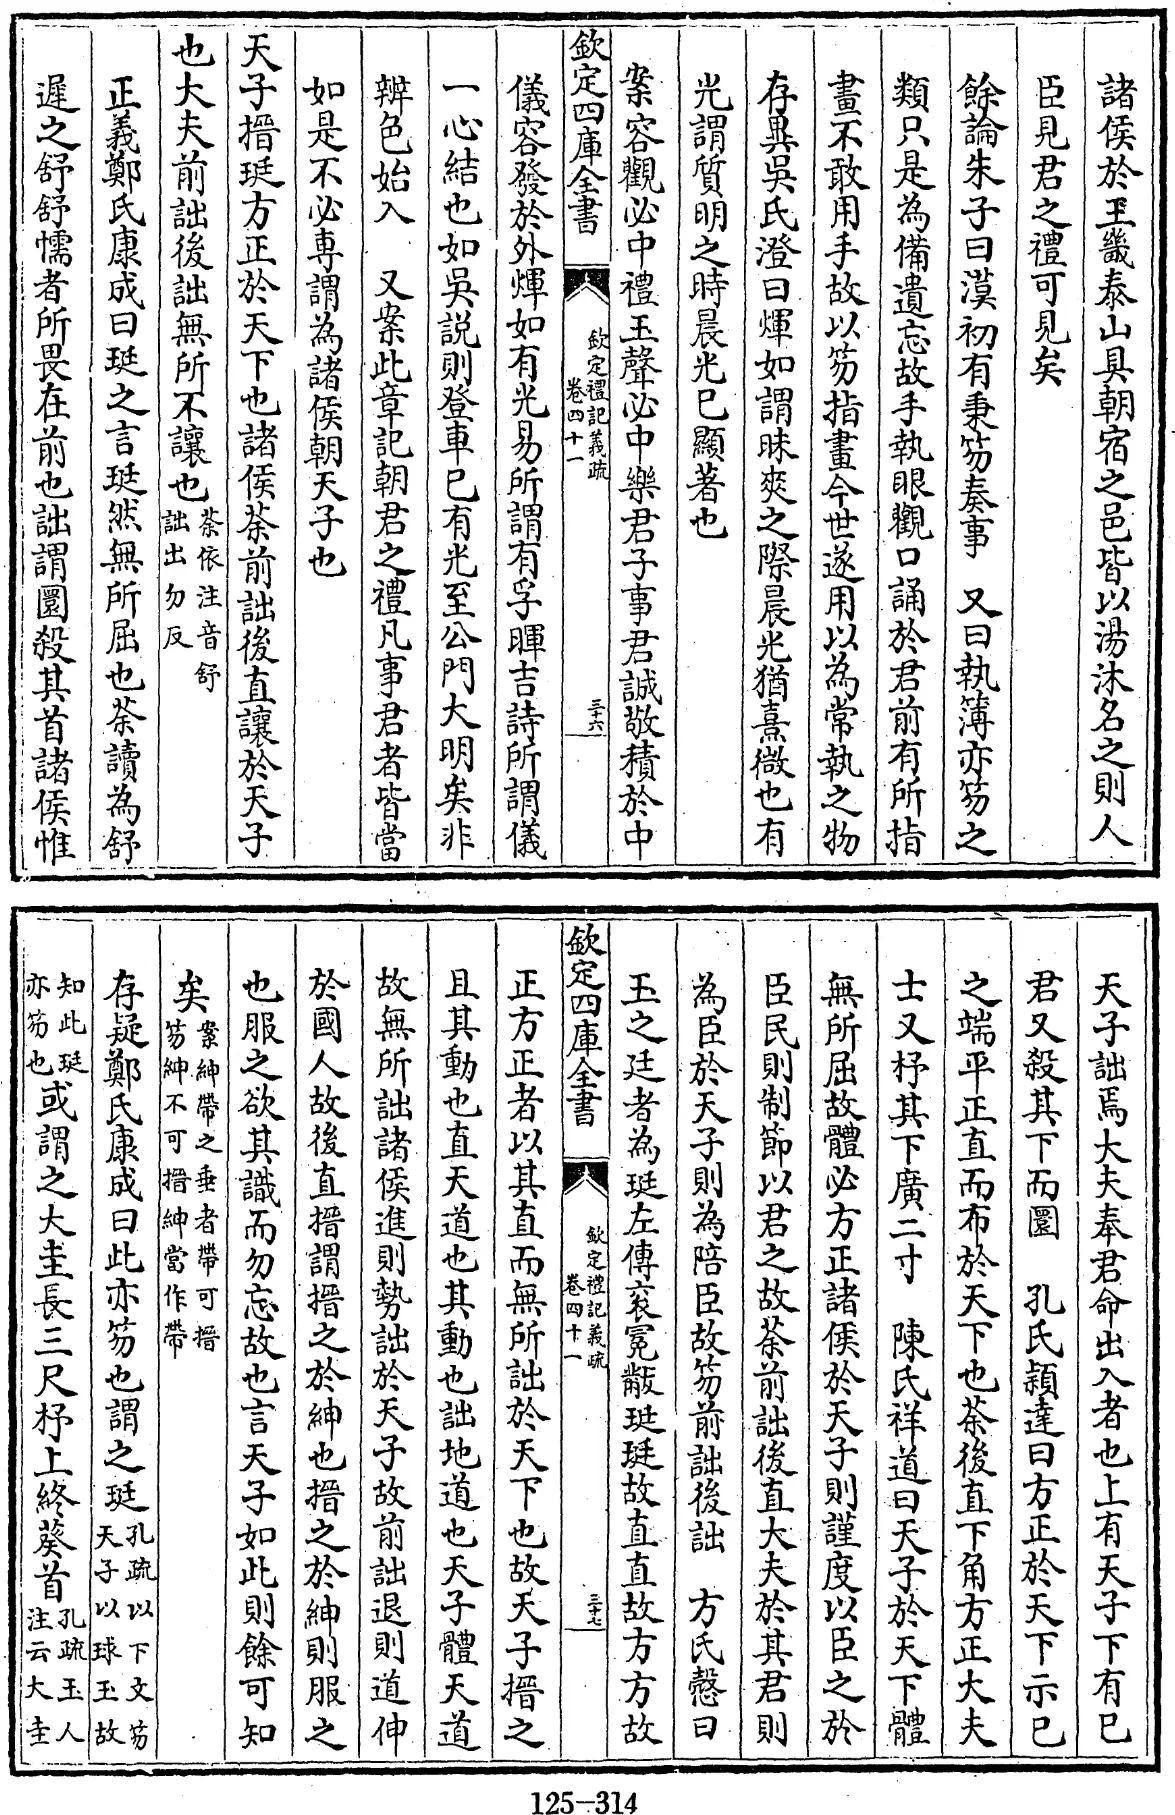 諸侯於王畿泰山具朝宿之邑皆以湯沐名之則人
臣見君之禮可見矣
餘論朱子曰漢初有秉笏奏事　又曰執簿亦笏之
類只是為備遺忘故手執眼觀口誦於君前有所指
畫不敢用手故以笏指畫今世遂用以為常執之物
存異吳氏澄曰煇如謂昧爽之際晨光猶熹微也有
光謂質明之時晨光已顯著也
案容觀必中禮玉聲必中樂君子事君誠敬積於中
欽定四庫全書
欽定禮記義疏
卷四十一
三十六
儀容發於外煇如有光易所謂有孚暉吉詩所謂儀
一心結也如吳説則登車已有光至公門大明矣非
辨色始入　又案此章記朝君之禮凡事君者皆當
如是不必專謂為諸侯朝天子也
天子搢珽方正於天下也諸侯荼前詘後直讓於天子
也大夫前詘後詘無所不讓也荼依注音舒
詘出勿反
正義鄭氏康成曰珽之言珽然無所屈也荼讀為舒
遲之舒舒懦者所畏在前也詘謂圜殺其首諸侯惟
天子詘焉大夫奉君命出入者也上有天子下有已
君又殺其下而圜　孔氏穎達曰方正於天下示已
之端平正直而布於天下也荼後直下角方正大夫
士又杼其下廣二寸　陳氏祥道曰天子於天下體
無所屈故體必方正諸侯於天子則謹度以臣之於
臣民則制節以君之故荼前詘後直大夫於其君則
為臣於天子則為陪臣故笏前詘後詘　方氏慤曰
玉之廷者為珽左傳衮冕黻珽珽故直直故方方故
欽定四庫全書
欽定禮記義疏
卷四十一
三十七
正方正者以其直而無所詘於天下也故天子搢之
且其動也直天道也其動也詘地道也天子體天道
故無所詘諸侯進則勢詘於天子故前詘退則道伸
於國人故後直搢謂搢之於紳也搢之於紳則服之
也服之欲其識而勿忘故也言天子如此則餘可知
矣案紳帶之垂者帶可搢
笏紳不可搢紳當作帶
存疑鄭氏康成曰此亦笏也謂之珽孔疏以下文笏
天子以球玉故
知此珽
亦笏也或謂之大圭長三尺杼上終葵首孔疏玉人
注云大圭
125-314